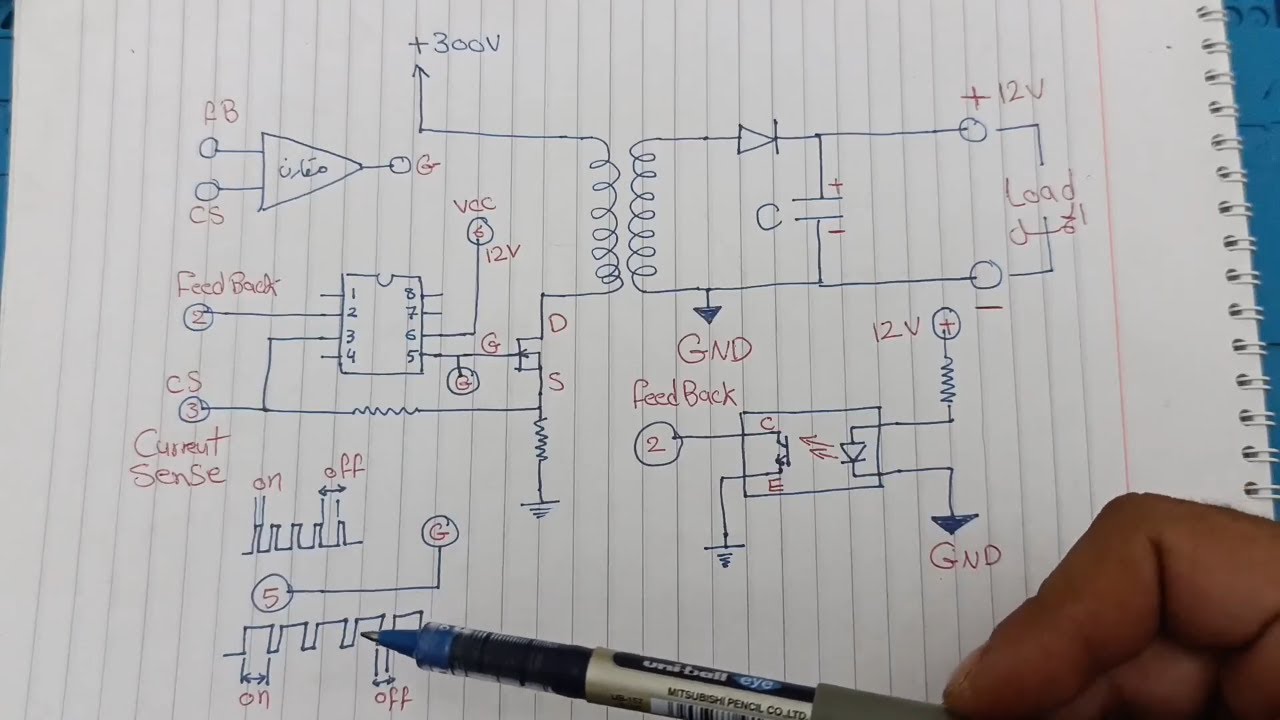 +300V
FB
مقارن
G
CS
+ 12V
Load
C
+
-
VCC
6
12V
Feed Back
2
1 8
2 7
3 6
4 5
G
G
D
S
GND
-
12V +
CS
3
Current
Sense
Feed Back
2
C
E
GND
on
off
G
5
on
off
uni-ball eye
UB-157
MITSUBISHI PENCIL CO.,LTD.